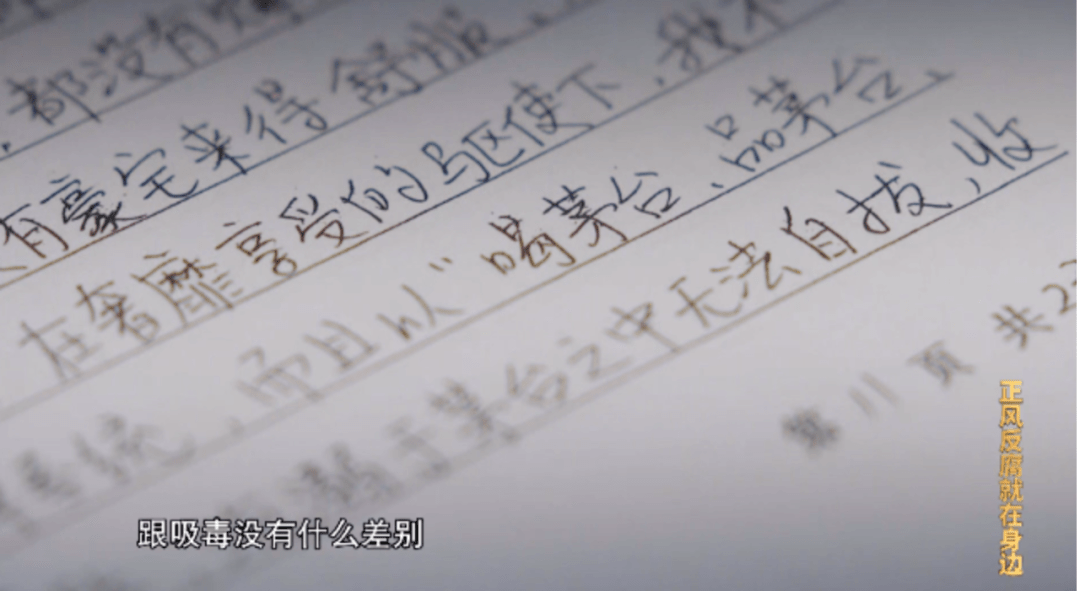 都没有
有豪宅来得舒服
在奢靡享受的驱使下，我不
系统，而且以“喝茅台、品茅台、
溺于茅台之中无法自拔，收
第11页 共2
跟吸毒没有什么差别
正风反腐就在身边